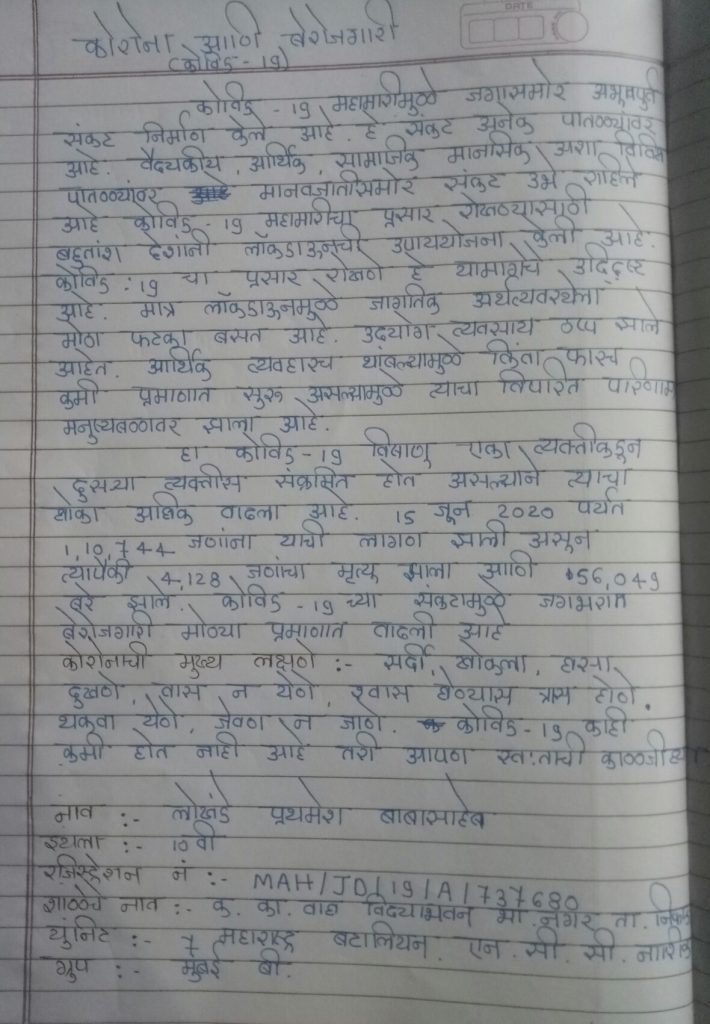 DATE
कोरोना आणि बेरोजगारी
(कोविड - 19)
कोविड - 19 महामारीमुळे जगासमोर अभूतपुर्व
संकट निर्माण केले आहे. हे संकट अनेक पातळ्यांवर
आहे. वैदयकीय, आर्थिक, सामाजिक मानसिक अशा विविध
पातळ्यांवर मानवजातीसमोर संकट उभे राहिले
आहे कोविड - 19 महामारीचा प्रसार रोखण्यासाठी
बहुतांश देशांनी लॉकडाऊनची उपाययोजना केली आहे.
कोविड : 19 चा प्रसार रोखणे हे यामागचे उदिद्ष्ट
आहे. मात्र लॉकडाऊनमुळे जागतिक अर्थव्यवस्थेला
मोठा फटका बसत आहे. उदयोग, व्यवसाय ठप्प झाले
आहेत. आर्थिक व्यवहारच थांबल्यामुळे किंवा फारच
कमी प्रमाणात सुरु असल्यामुळे त्याचा विपरित परिणाम
मनुष्यबळावर झाला आहे.
हा कोविड - 19 विषाणू एका व्यक्तीकडून
दुसऱ्या व्यक्तीस संक्रमित होत असल्याने त्याचा
धोका अधिक वाढला आहे. 15 जून 2020 पर्यंत
1,10,744 जणांना याची लागण झाली असून
त्यापैकी 4,128 जणांचा मृत्यू झाला आणि 56,049
बरे झाले. कोविड - 19 च्या संकटामुळे जगभरात
बेरोजगारी मोठ्या प्रमाणात वाढली आहे
कोरोनाची मुख्य लक्षणे :- सर्दी, खोकला, घसा
दुखणे, वास न येणे, श्वास घेण्यास त्रास होणे.
थकवा येणे, जेवण न जाणे. कोविड - 19 काही
कमी होत नाही आहे तरी आपण स्व:ताची काळजी घ्या
नाव :- लोखंडे प्रथमेश बाबासाहेब
इयत्ता :- 10 वी
रजिस्ट्रेशन नं :- MAH/JD/19/A/737680
शाळेचे नाव :- क. का. वाघ विदयाभवन भा. नगर ता. निफाड
युनिट :- 7 महाराष्ट्र बटालियन. एन. सी. सी. नाशिक
ग्रुप :- मुंबई बी.